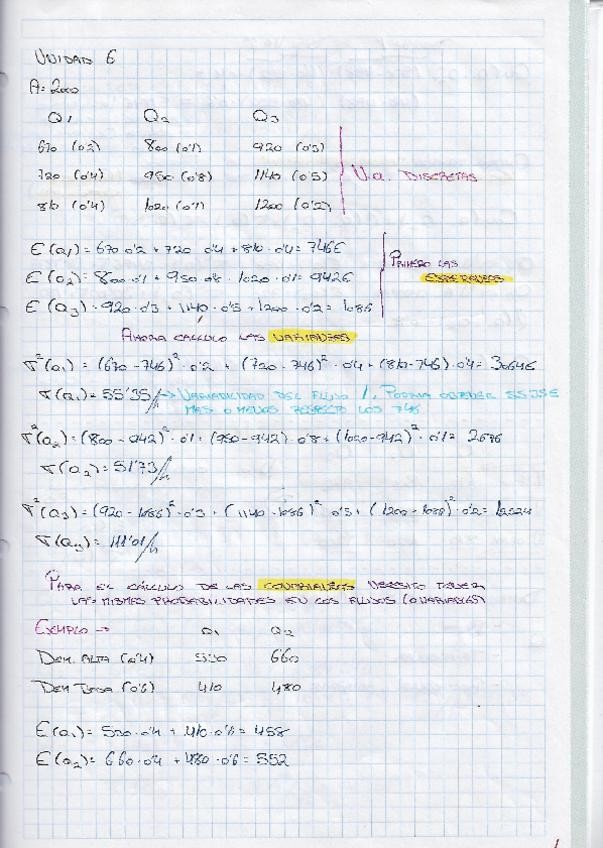 UNIDAD 6
A = 2000
Q1 Q2 Q3
670 (0'2) 800 (0'1) 920 (0'3)
720 (0'4) 950 (0'8) 1140 (0'5) V.a. DISCRETAS
810 (0'4) 1020 (0'1) 1200 (0'2)
E(Q1) = 670·0'2 + 720·0'4 + 810·0'4 = 746€
PRIMERO LAS
E(Q2) = 800·0'1 + 950·0'8 · 1020·0'1 = 942€
ESPERANZAS
E(Q3) · 920·0'3 + 1140·0'5 + 1200·0'2 = 1086
AHORA CALCULO LAS VARIANZAS
σ²(Q1) = (670-746)²·0'2 + (720-746)²·0'4 + (810-746)·0'4 = 3064€
σ(Q1) = 55'35 → VARIABILIDAD DEL FLUJO 1. PODRIA OBTENER 55'35€
MAS O MENOS RESPECTO LOS 746
σ²(Q2) = (800-942)²·0'1 + (950-942)·0'8 + (1020-942)²·0'1 = 2676
σ(Q2) = 51'73
σ²(Q3) = (920-1086)²·0'3 + (1140-1086)²·0'5 + (1200-1086)²·0'2 = 12324
σ(Q3) = 111'01
PARA EL CÁLCULO DE LAS COVARIANZAS NECESITO TENER
LAS MISMAS PROBABILIDADES EN LOS FLUJOS (O VARIABLES)
EJEMPLO → Q1 Q2
DEM. ALTA (0'4) 530 660
DEM BAJA (0'6) 410 480
E(Q1) = 530·0'4 + 410·0'6 = 458
E(Q2) = 660·0'4 + 480·0'6 = 552
1